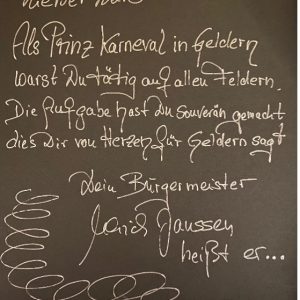 Als Prinz Karneval in Geldern
warst Du tätig auf allen Feldern.
Die Aufgabe hast Du souverän gemacht
dies Dir von Herzen für Geldern sagt
Dein Bürgermeister
Janssen
heißt er...